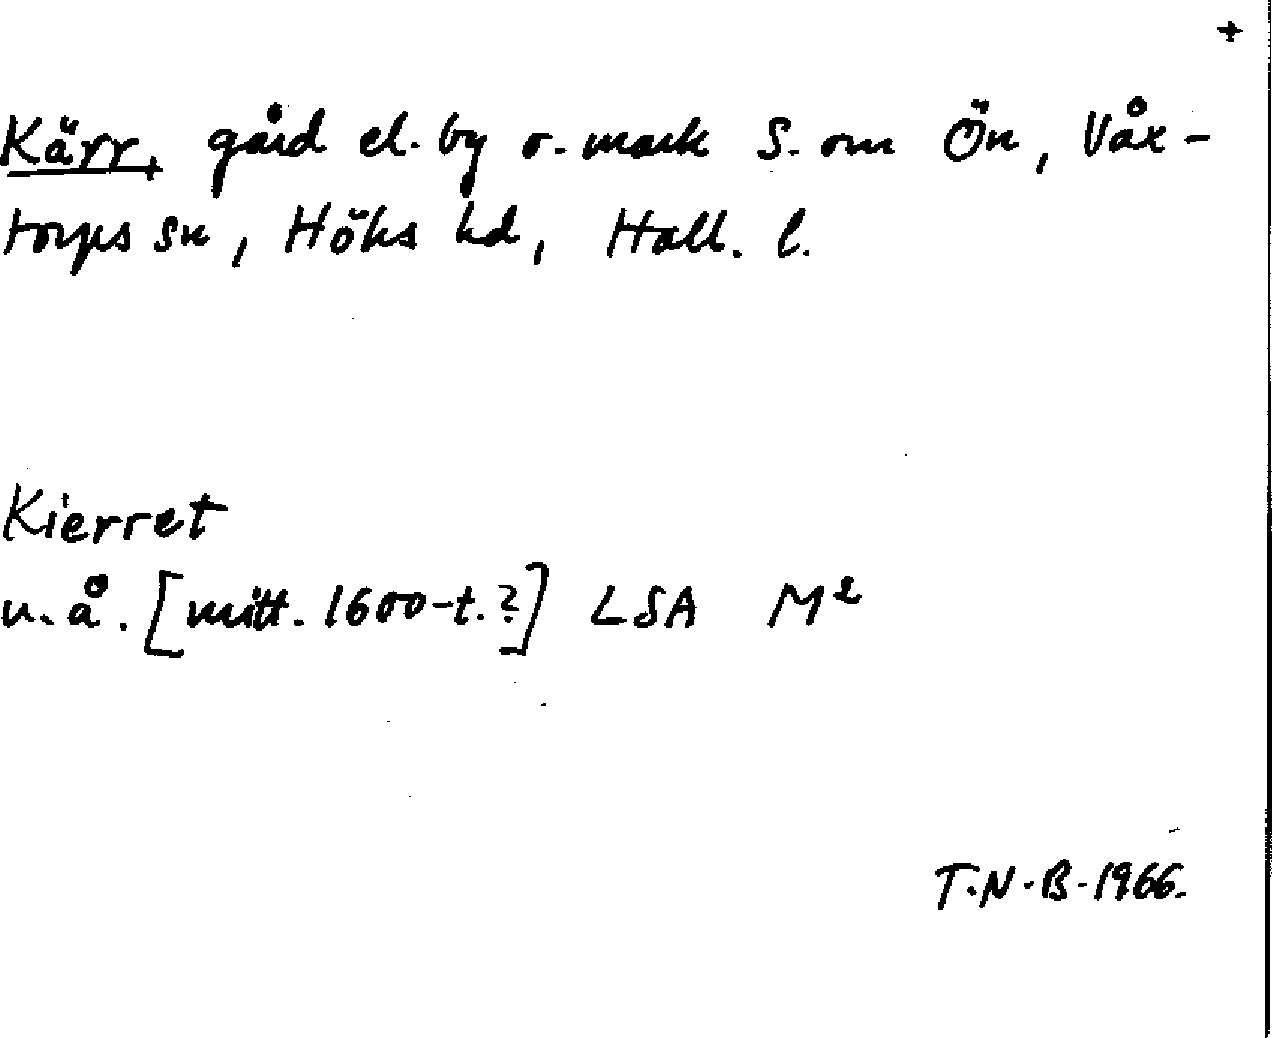 +
Kärr, gård el. by o. mark S. om Ön, Våx-
torps sn, Höks hd, Hall. l.
Kierret
u.å. [mitt. 1600-t.?] LSA M2
T.N.B. 1966.